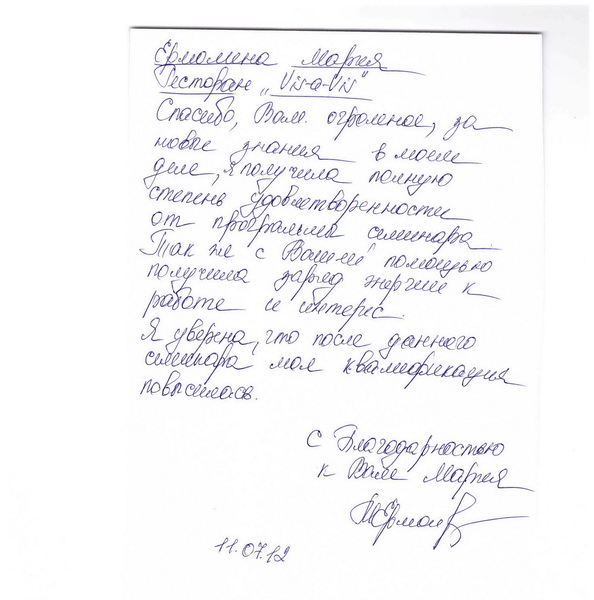 Ермолина Мария
Ресторан „Vis-a-Vis"
Спасибо, Вам огромное, за
новые знания в моем
деле, я получила полную
степень удовлетворенности
от программы семинара.
Так же с Вашей помощью
получила заряд энергии к
работе и интерес.
Я уверена, что после данного
семинара моя квалификация
повысилась.
с Благодарностью
к Вам Мария
11.07.12